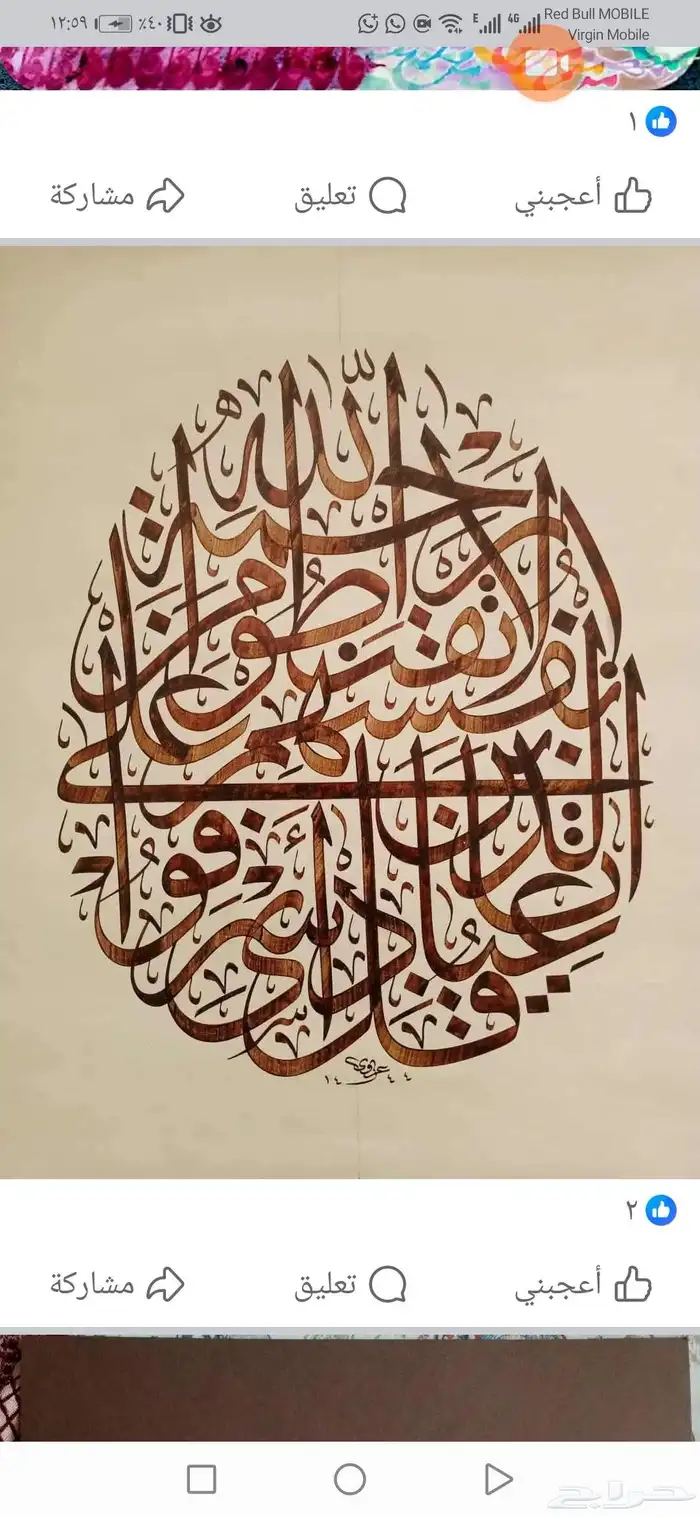 ١٢:٥٩ ٪٤٠ E 4G Red Bull MOBILE
Virgin Mobile
١
أعجبني تعليق مشاركة
قل يا عبادي الذين أسرفوا على أنفسهم لا تقنطوا من رحمة الله
١٤٤٤
٢
أعجبني تعليق مشاركة
حراج